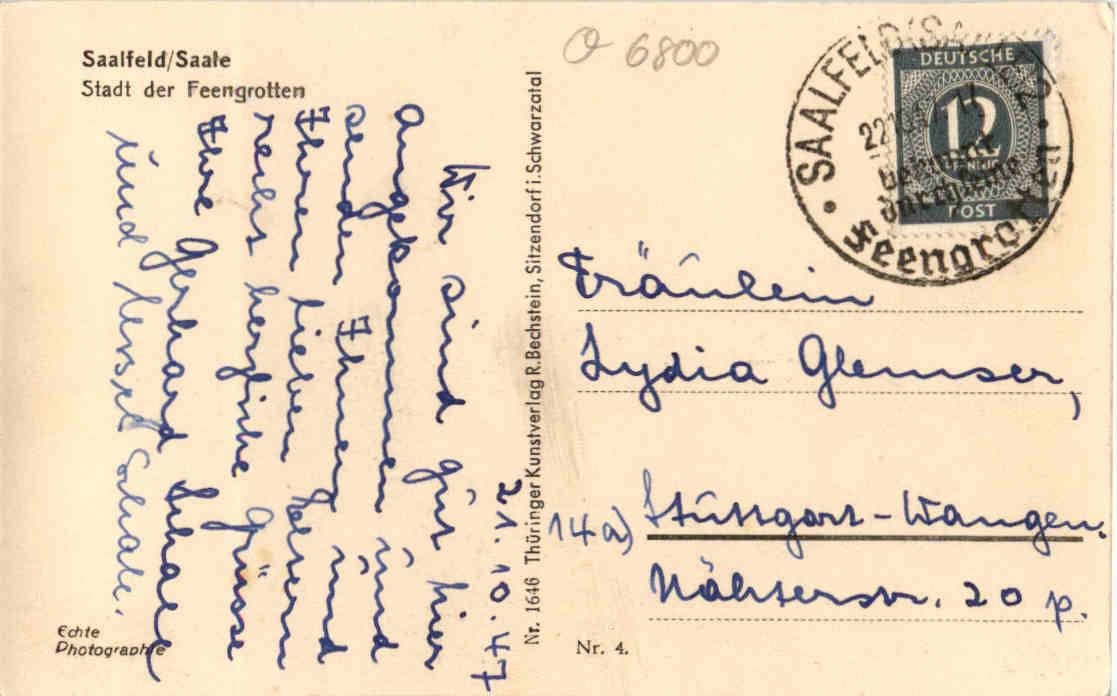 Saalfeld/Saale
Stadt der Feengrotten
21.10.47
Wir sind gut hier
angekommen und
senden Ihnen und
Ihren lieben Eltern
recht herzliche Grüsse
Ihre Gerhard Schaal
und Schaal.
Echte
Photographie
Nr. 1646 Thüringer Kunstverlag R. Bechstein, Sitzendorf i. Schwarzatal
6800
SAALFELD (SAALE) 2
DEUTSCHE
12
PFENNIG
POST
bekannt
durch seine
Feengrotten
Fräulein
Lydia Glemser,
14a) Stuttgart-Wangen.
Nähterstr. 20 p.
Nr. 4.